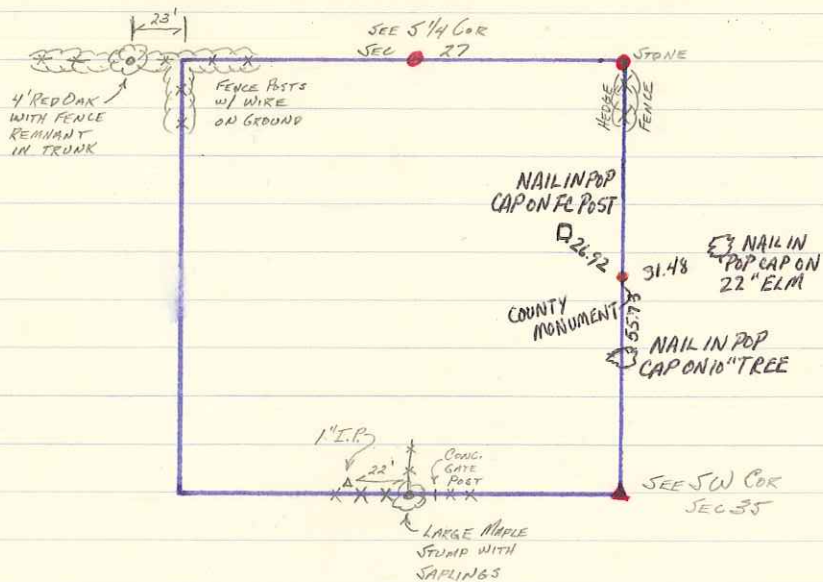 23'
SEE S 1/4 COR
SEC 27
STONE
4' RED OAK
WITH FENCE
REMNANT
IN TRUNK
FENCE POSTS
W/ WIRE
ON GROUND
HEDGE
FENCE
NAIL IN POP
CAP ON FC POST
26.92
31.48
NAIL IN
POP CAP ON
22" ELM
COUNTY
MONUMENT
55.73
NAIL IN POP
CAP ON 10" TREE
1" I.P.
22'
CONC.
GATE
POST
SEE SW COR
SEC 35
LARGE MAPLE
STUMP WITH
SAPLINGS